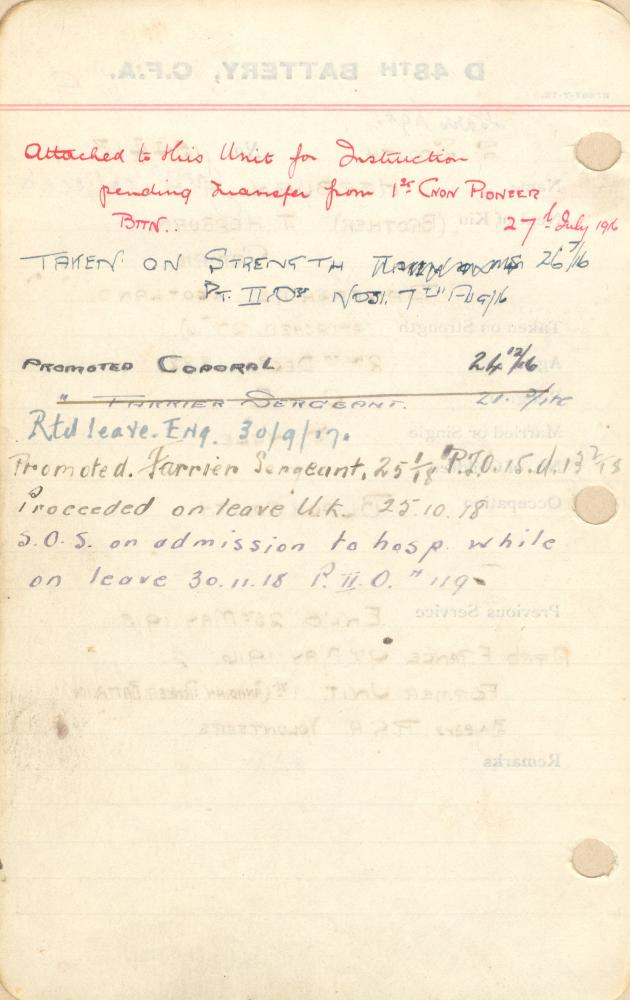 Attached to this Unit for Instruction
pending transfer from 1st Cnon Pioneer
Bttn..
27th July 1916
Taken on Strength 26/7/16
Pt. II. Drs No 31. 7th Aug 16
Promoted Coporal 24/12/16
" Farrier Sergeant.
Rtd leave. Eng. 30/9/17.
Promoted. Farrier Sergeant, 25 1/18 P.II.O. 15. d. 13 2/18
Proceeded on leave U.K. 25.10.18
S.O.S. on admission to hosp. while
on leave 30.11.18 P.II.O. # 119
D 48TH BATTERY, C.F.A.
(Brother)
Taken on Strength
Married or Single
Occupation
Previous Service
Former Unit 1st Canadian Pioneer Battalion
Volunteers
Remarks